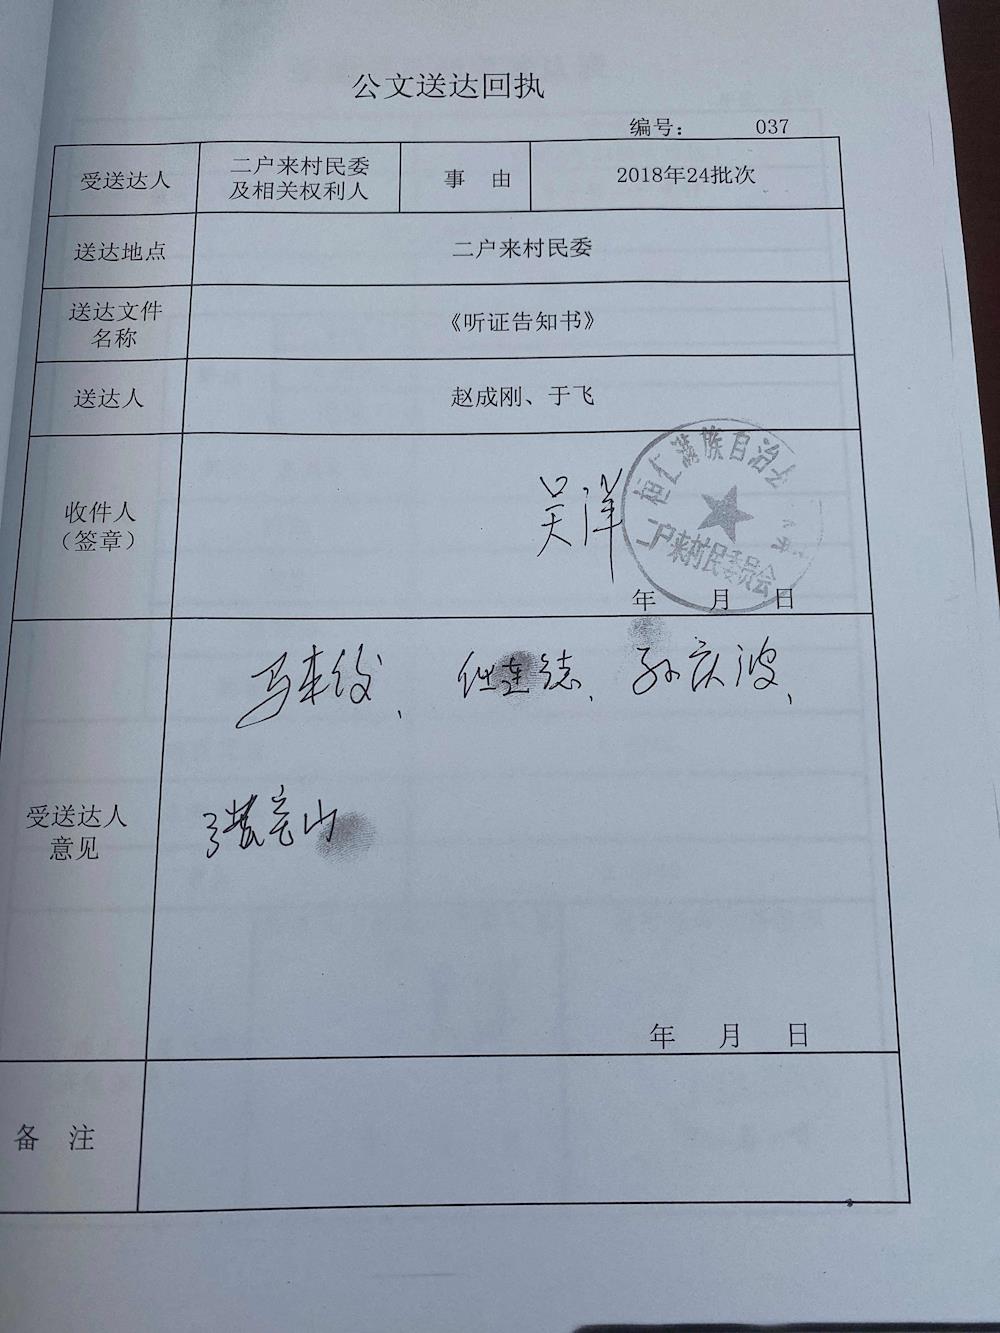 公文送达回执
编号： 037
受送达人
二户来村民委
及相关权利人
事 由
2018年24批次
送达地点
二户来村民委
送达文件
名称
《听证告知书》
送达人
赵成刚、于飞
收件人
（签章）
吴洋
桓仁满族自治
二户来村民委员会
年 月 日
孙庆波、
受送达人
意见
年 月 日
备 注